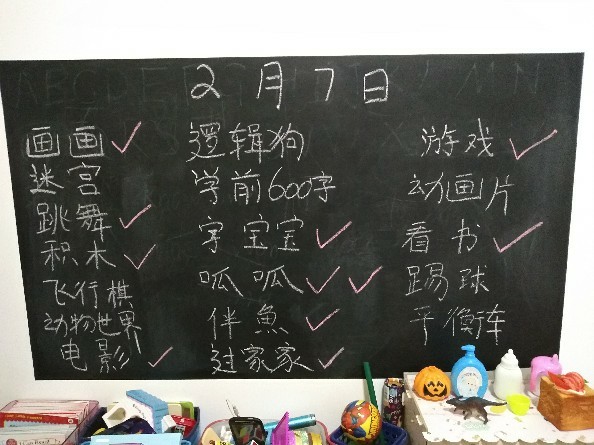 2月7日
画画
迷宫
跳舞
积木
飞行棋
动物世界
电影
逻辑狗
学前600字
字宝宝
呱呱
伴鱼
过家家
游戏
动画片
看书
踢球
平衡车